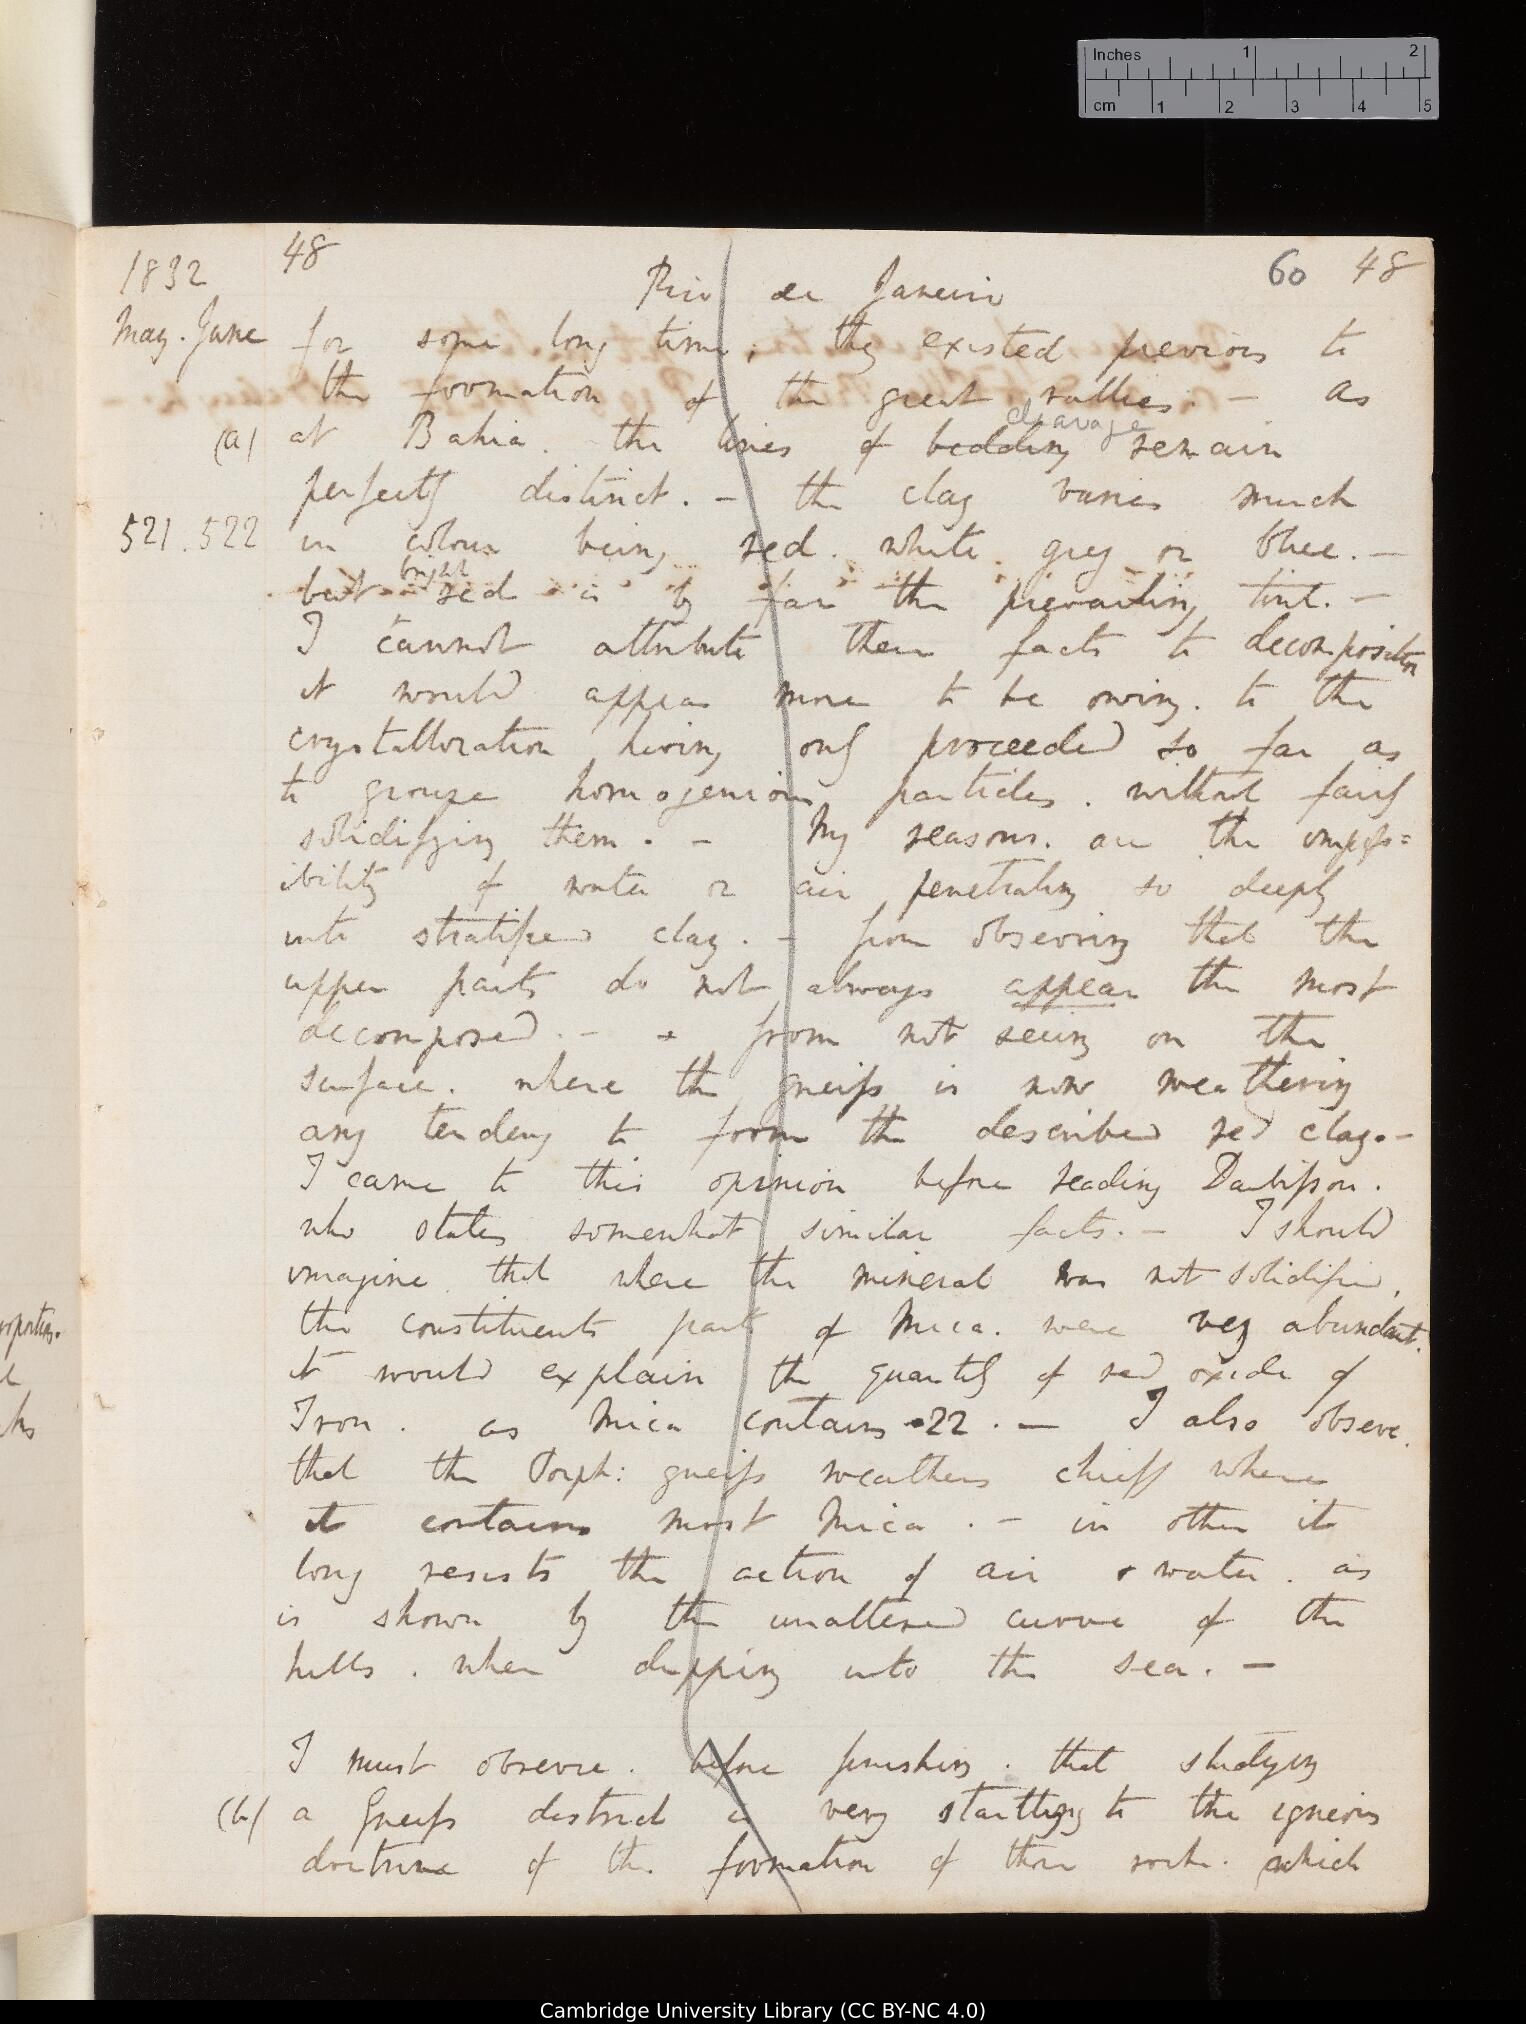 48
60 48
1832
Rio de Janeiro
May. June
for some long time; they existed previous to
the formation of the great vallies. — As
cleavage
(a) at Bahia. the lines of bedding remain
perfectly distinct. — the clay varies much
521. 522 in colour being red. white. grey or blue. —
bright
but red is by far the prevailing tint. —
I cannot attribute these facts to decomposition
it would appear more to be owing. to the
crystallization having only proceeded so far as
to groupe homogenious particles. without fairly
solidifying them. — My reasons. are the imposs=
ibility of water or air penetrating so deeply
into stratified clay. — from observing that the
upper parts do not always appear the most
decomposed. — & from not seeing on the
surface. where the gneiss is now weathering
any tendency to form the described red clay. —
I came to this opinion before reading Daubisson.
who states somewhat similar facts. — I should
imagine that where the mineral was not solidified,
the constituents part of Mica. were very abundant.
it would explain the quantity of red oxide of
Iron. as Mica contains .22. — I also observe.
that the Porph: gneiss weathers chiefly where
it contains most Mica. — in other it
long resists the action of air & water. as
is shown by the unaltered curve of the
hills. when dipping into the sea. —
I must observe. before finishing. that studying
(b) a Gneiss district is very startling to the igneous
doctrine of the formation of these rocks. which
Inches 1 2
cm 1 2 3 4 5
Cambridge University Library (CC BY-NC 4.0)